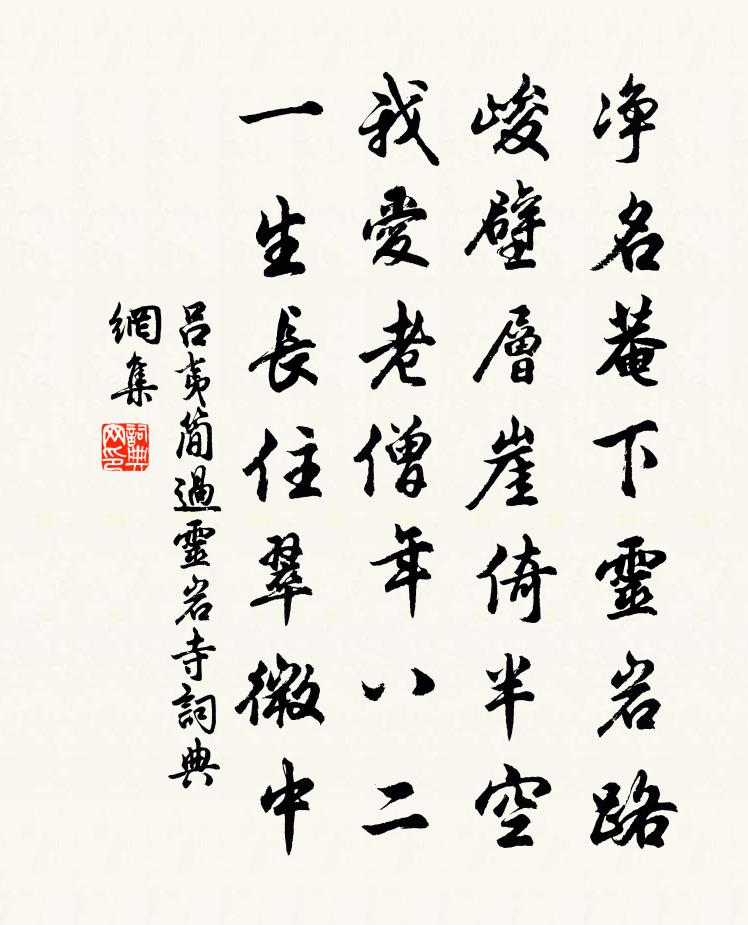 净名菴下靈岩路
峻壁層崖倚半空
我愛老僧年八二
一生長住翠微中
呂夷簡過靈岩寺詞典
網集
詞典
网印